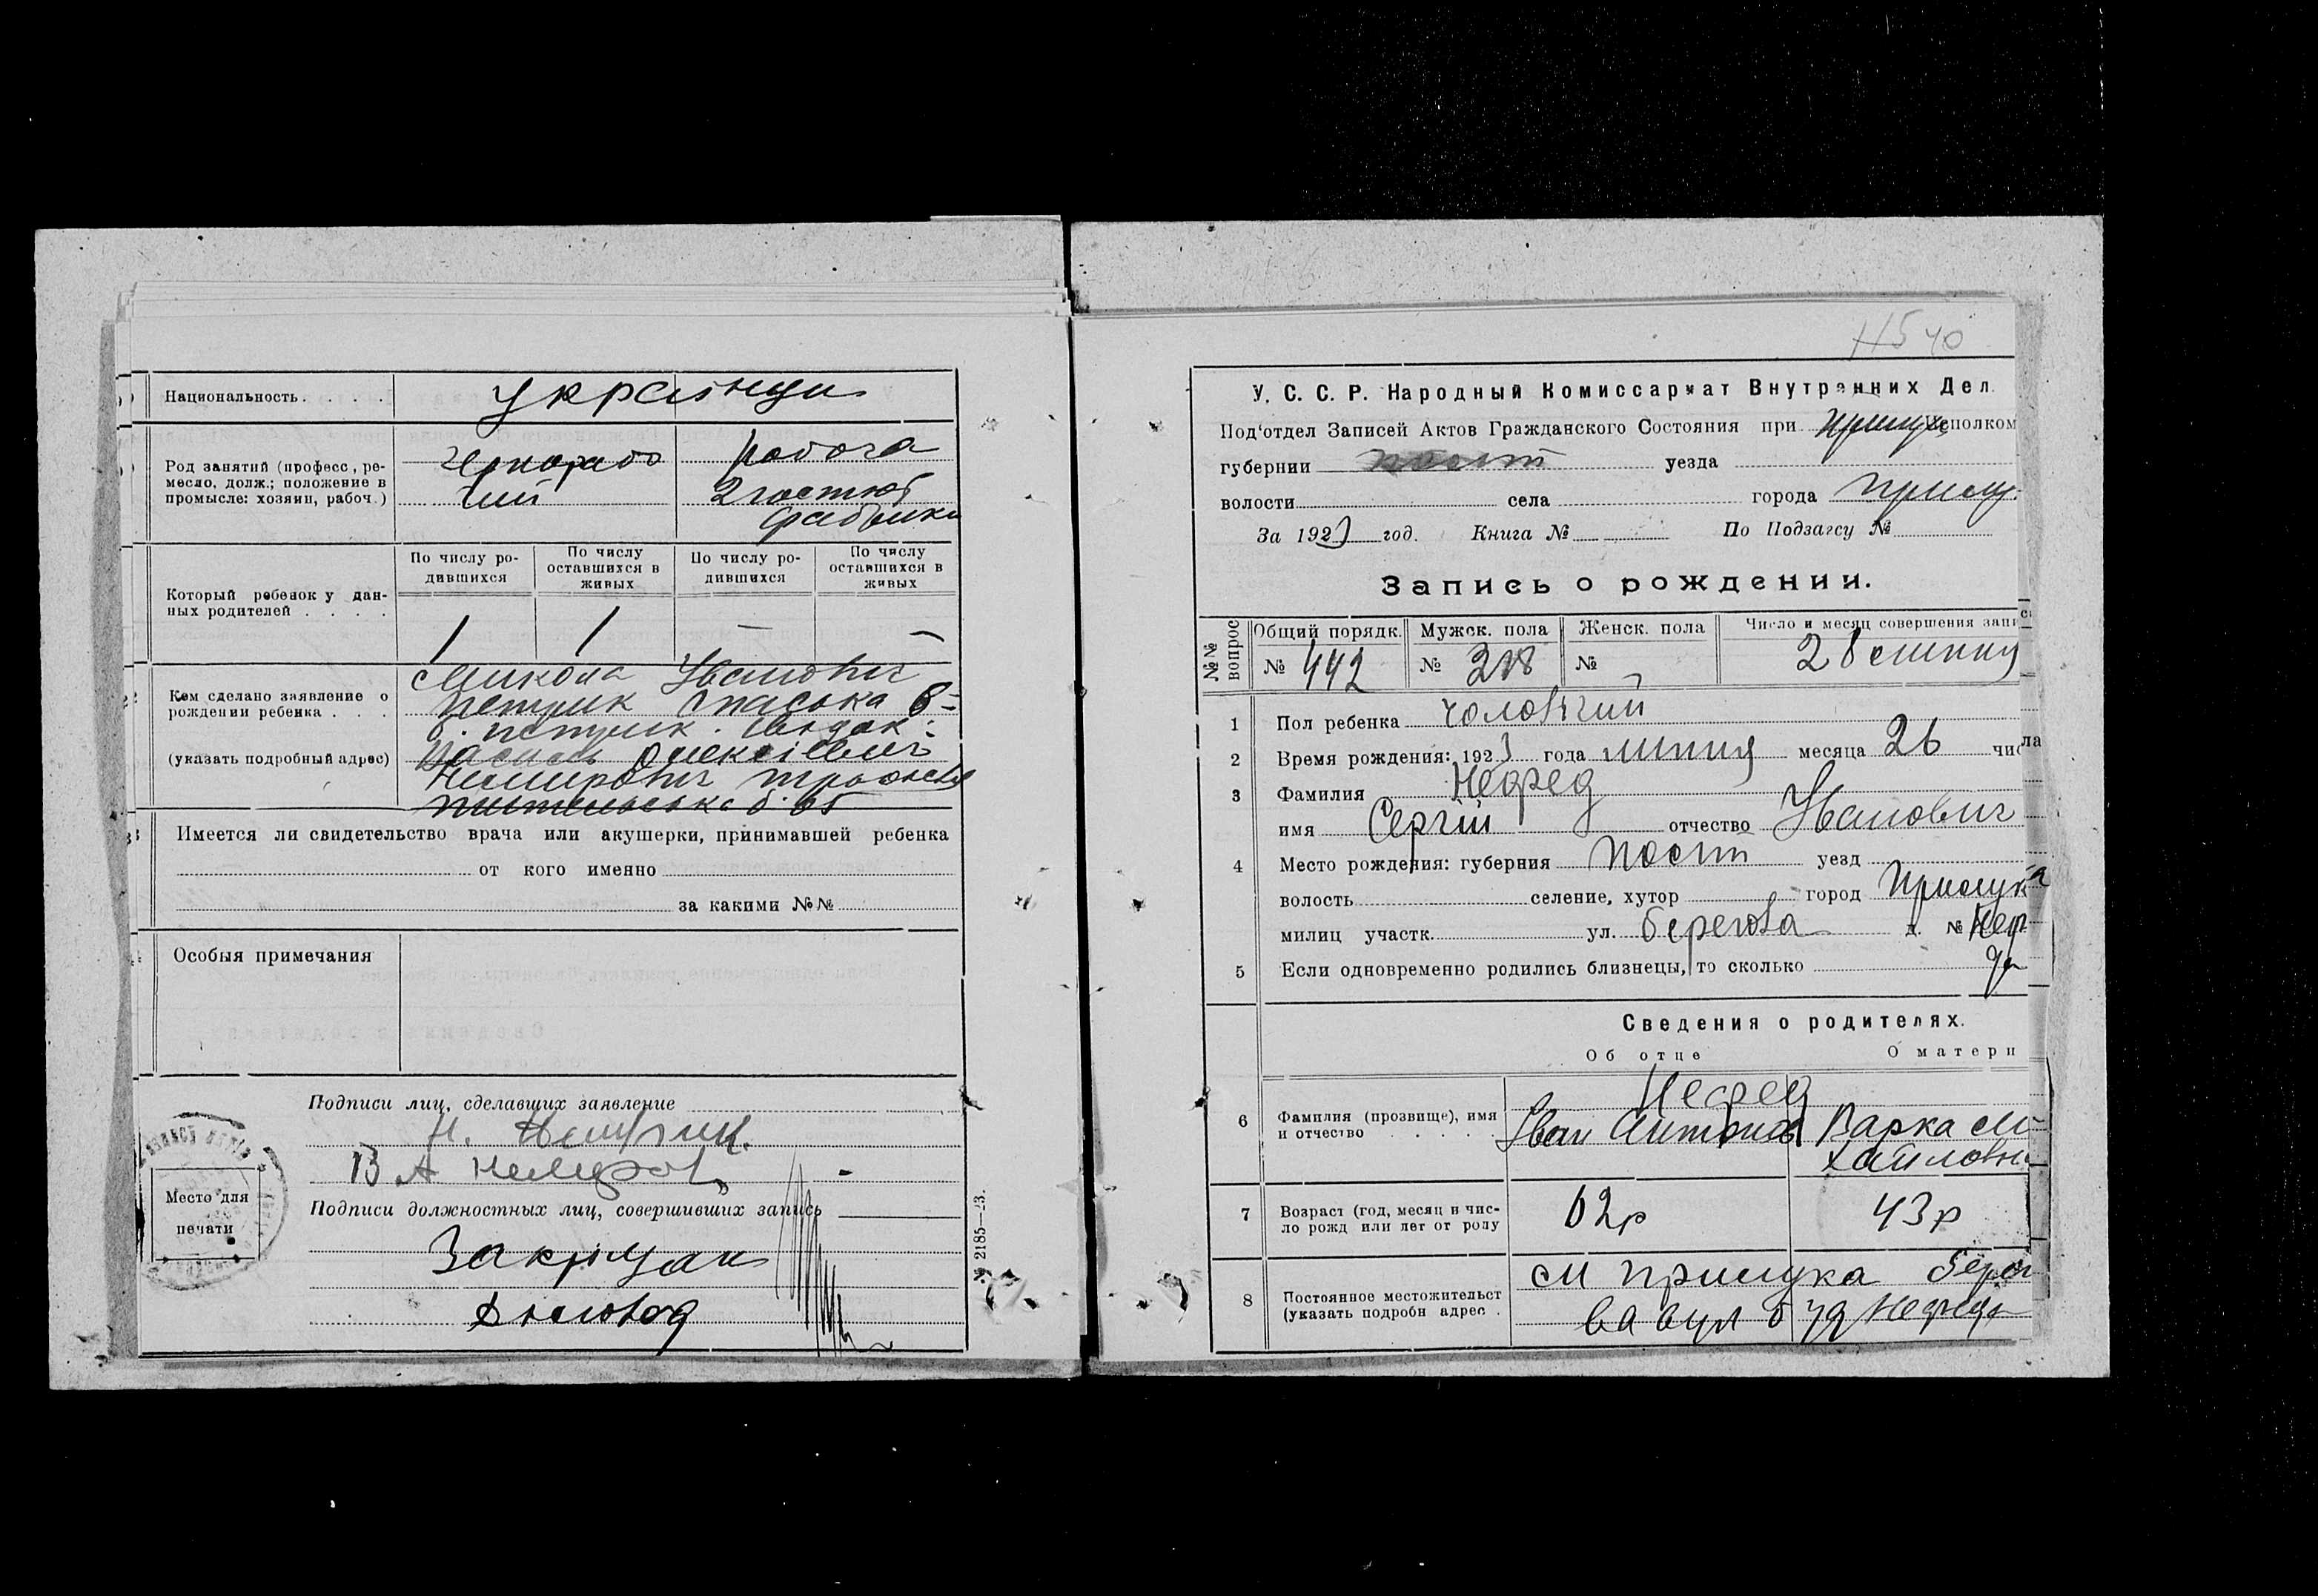 Национальность
українци
Род занятий (професс, ре-
месло, долж.; положение в
промысле: хозяин, рабоч.)
чернорабо
чий
робоча
2 гостют
фабрики
Который ребенок у дан-
ных родителей
По числу ро-
дившихся
По числу
оставшихся в
живых
По числу ро-
дившихся
По числу
оставшихся в
живых
1 1 — —
Кем сделано заявление о
рождении ребенка
(указать подробный адрес)
Микола Иванович
Петрик Спаська б-
б. Петрик
Василь Олексіевич
Немирович
б. 65
Имеется ли свидетельство врача или акушерки, принимавшей ребенка
от кого именно
за какими №№
Особыя примечания
Подписи лиц, сделавших заявление
Н. Петрик
В А Немиров
Подписи должностных лиц, совершивших запись
Место для
печати
Діловод
№ 2185—23.
Н540
У. С. С. Р. Народный Комиссариат Внутренних Дел
Под'отдел Записей Актов Гражданского Состояния при Прилуц Исполком
губернии Полт уезда
волости села города Прилу
За 1923 год. Книга № По Подзагсу №
Запись о рождении.
№№ вопрос
Общий порядк. Мужск. пола Женск. пола Число и месяц совершения запи
№ 442 № 218 № 28 липня
1 Пол ребенка чоловічий
2 Время рождения: 1923 года липня месяца 26 числа
3 Фамилия Нефед
имя Сергій отчество Иванович
4 Место рождения: губерния Полт уезд
волость селение, хутор город Прилука
милиц участк. ул. берегова д. № Неф
да
5 Если одновременно родились близнецы, то сколько
Сведения о родителях.
Об отце О матери
6 Фамилия (прозвище), имя
и отчество
Нефед
Іван Антонов Варка Ми-
хайловна
7 Возраст (год, месяц и чис-
ло рожд или лет от роду
62р 43р
8 Постоянное местожительст
(указать подробн адрес .
м Прилука берег
ва вул б 42 Нефеда